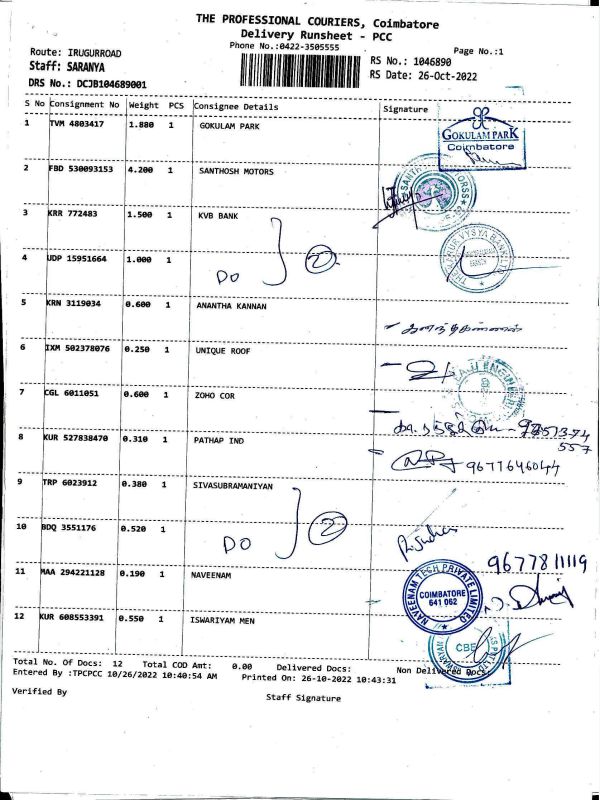 THE PROFESSIONAL COURIERS, Coimbatore
Delivery Runsheet - PCC
Phone No.:0422-3505555
Page No.:1
Route: IRUGURROAD
Staff: SARANYA
DRS No.: DCJB104689001
RS No.: 1046890
RS Date: 26-Oct-2022
S No Consignment No Weight PCS Consignee Details Signature
1 TVM 4803417 1.880 1 GOKULAM PARK
GOKULAM PARK
Coimbatore
2 FBD 530093153 4.200 1 SANTHOSH MOTORS
3 KRR 772483 1.500 1 KVB BANK
4 UDP 15951664 1.000 1
DO 2
5 KRN 3119034 0.600 1 ANANTHA KANNAN
6 IXM 502378076 0.250 1 UNIQUE ROOF
7 CGL 6011051 0.600 1 ZOHO COR
8 KUR 527838470 0.310 1 PATHAP IND
9677646044
9 TRP 6023912 0.380 1 SIVASUBRAMANIYAN
10 BDQ 3551176 0.520 1
DO 2
11 MAA 294221128 0.190 1 NAVEENAM
9677811119
NAVEENAM TECH PRIVATE LIMITED
COIMBATORE
641 062
12 KUR 608553391 0.550 1 ISWARIYAM MEN
CBE
Total No. Of Docs: 12 Total COD Amt: 0.00 Delivered Docs: Non Delivered Docs:
Entered By :TPCPCC 10/26/2022 10:40:54 AM Printed On: 26-10-2022 10:43:31
Verified By
Staff Signature